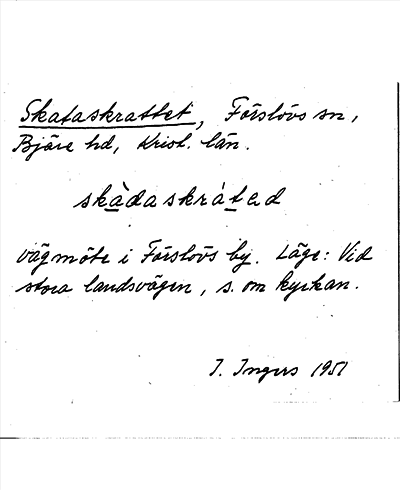 Skataskrattet, Förslövs sn,
Bjäre hd, Krist. län.
skàdaskrátəd
vägmöte i Förslövs by. Läge: Vid
stora landsvägen, s. om kyrkan.
I. Ingers 1951